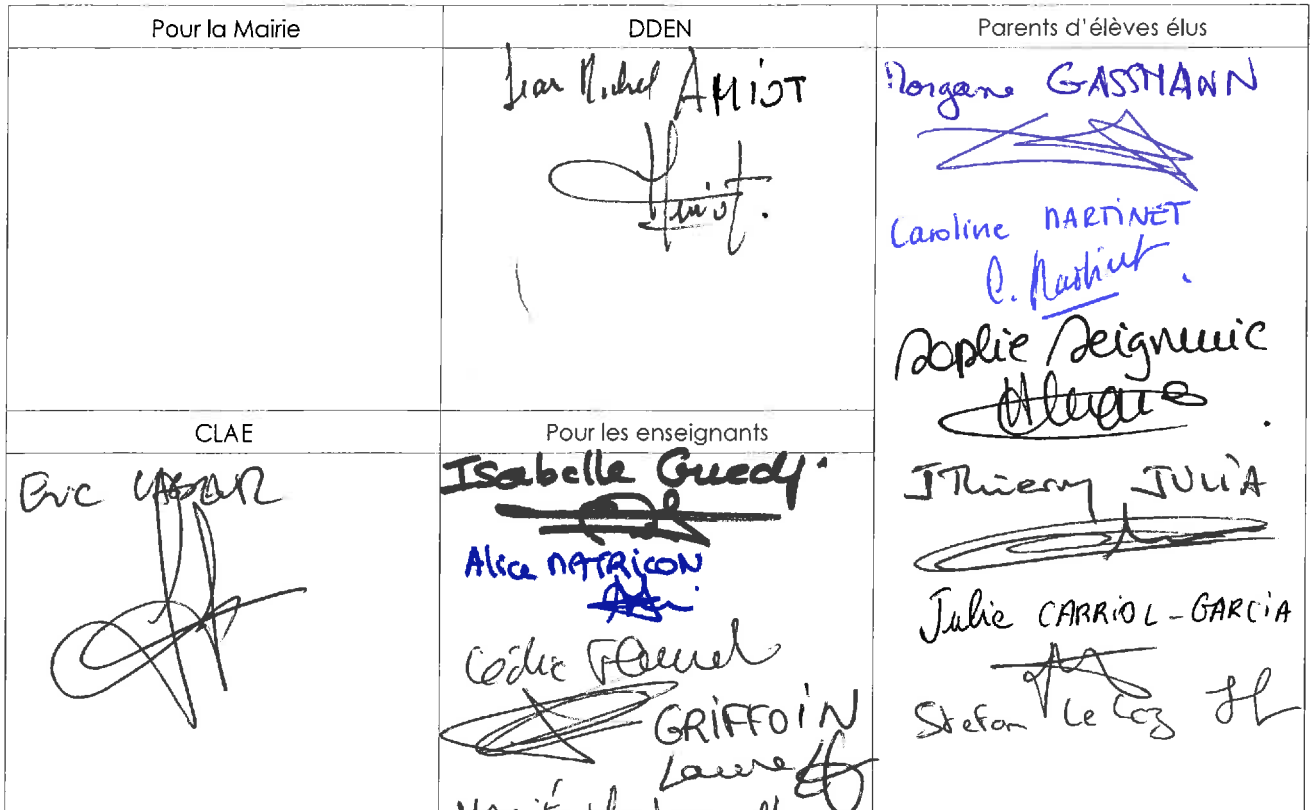 Pour la Mairie
DDEN
Parents d'élèves élus
Jean Michel AMIOT
Amiot.
Morgane GASSMANN
Caroline MARTINET
C. Martinet.
Sophie Seigneuric
CLAE
Pour les enseignants
Eric
Isabelle Guedj.
Alice MATRICON
Cédric
GRIFFOIN
Laure
JThierry JULIA
Julie CARRIOL-GARCIA
Stefan Le Coz